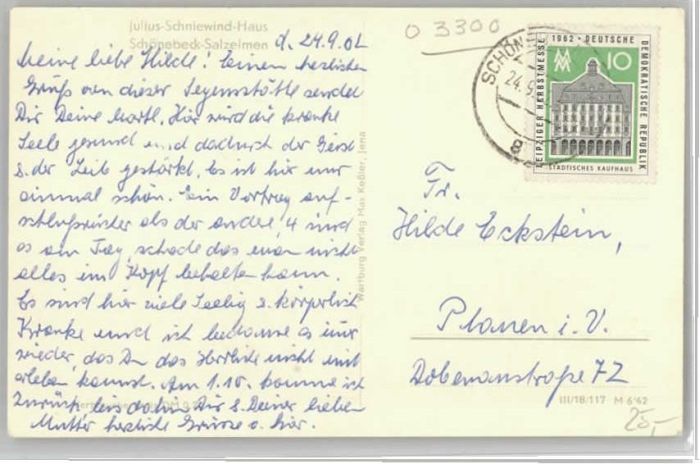 Julius-Schniewind-Haus
Schönebeck-Salzelmen
d. 24.9.62
Meine liebe Hilde! Einen herzlichen
Gruß von dieser Segensstätte sendet
Dir Deine Hier wird die kranke
Seele gesund und dadurch der Geist
u. der Leib gestärkt. Es ist hier nur
einmal schön. Ein Vortrag auf-
schlußreicher als der andere, 4 sind
es am Tag, schade das man nicht
alles im Kopf behalten kann.
Es sind hier viele Seelig u. körperlich
Kranke und ich bedaure es nur
wieder, das Du das Herrliche nicht mit
erleben kannst. Am 1.10. komme ich
zurück, bis dahin Dir u. Deiner lieben
Mutter herzliche Grüsse v. hier.
Wartburg Verlag Max Keßler Jena
O 3300
SCHÖN
24.9
8
1962 · DEUTSCHE
DEMOKRATISCHE REPUBLIK
LEIPZIGER HERBSTMESSE
MM 10
STÄDTISCHES KAUFHAUS
Fr.
Hilde Eckstein,
Plauen i. V.
Dobenaustraße 72
III/18/117 M 6/62
25,-